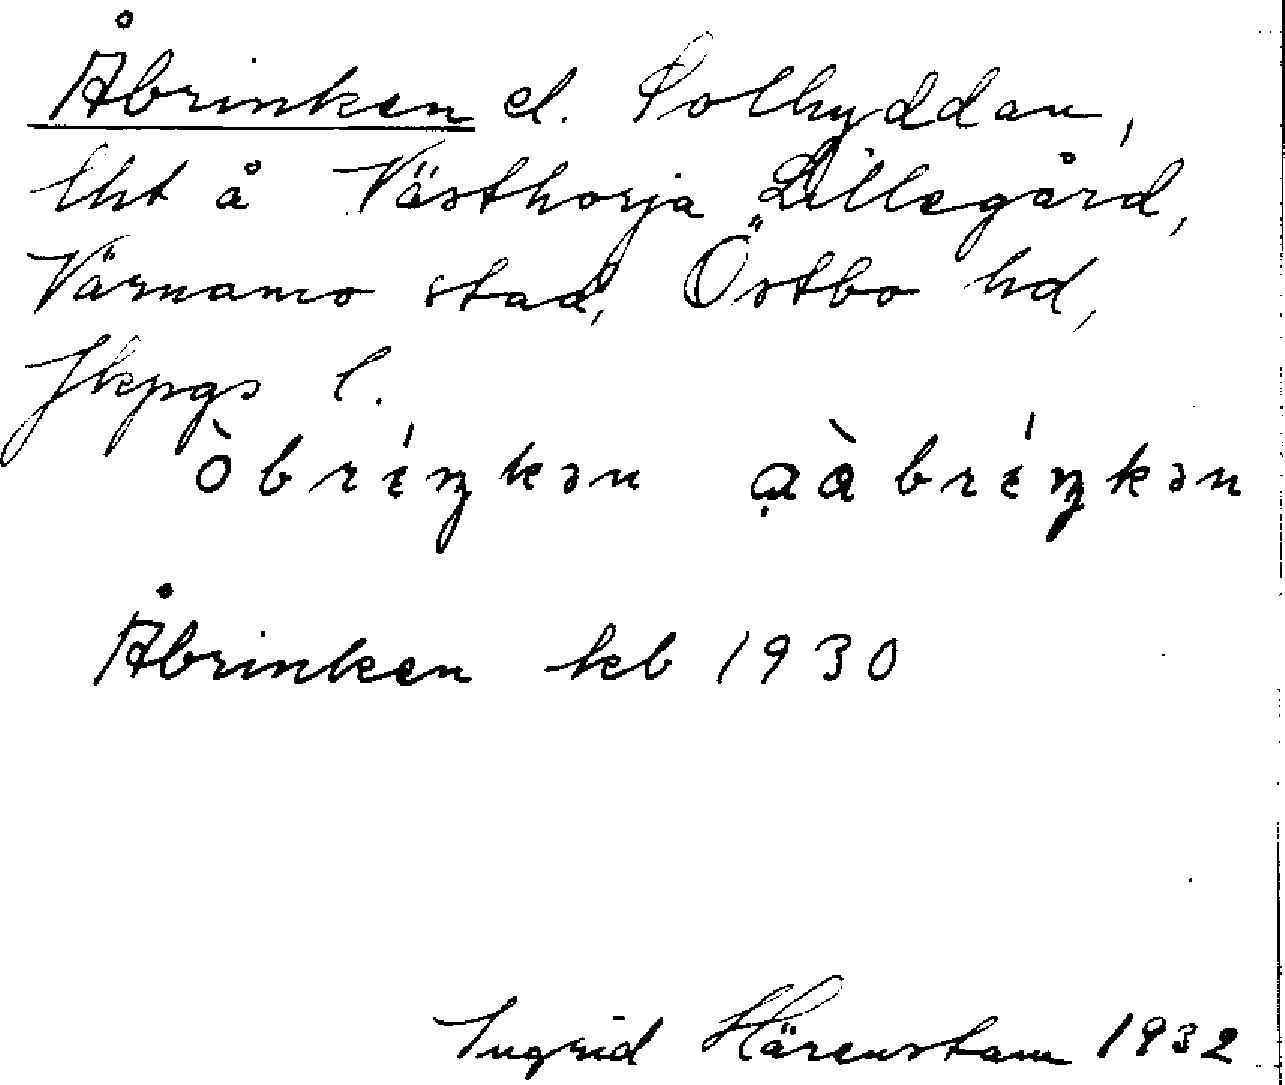 Åbrinken el. Solhyddan,
lht å Västhorja Lillegård,
Värnamo stad, Östbo hd,
Jkpgs l.
òbríŋkən ạàbríŋkən
Åbrinken kb 1930
Ingrid Härenstam 1932